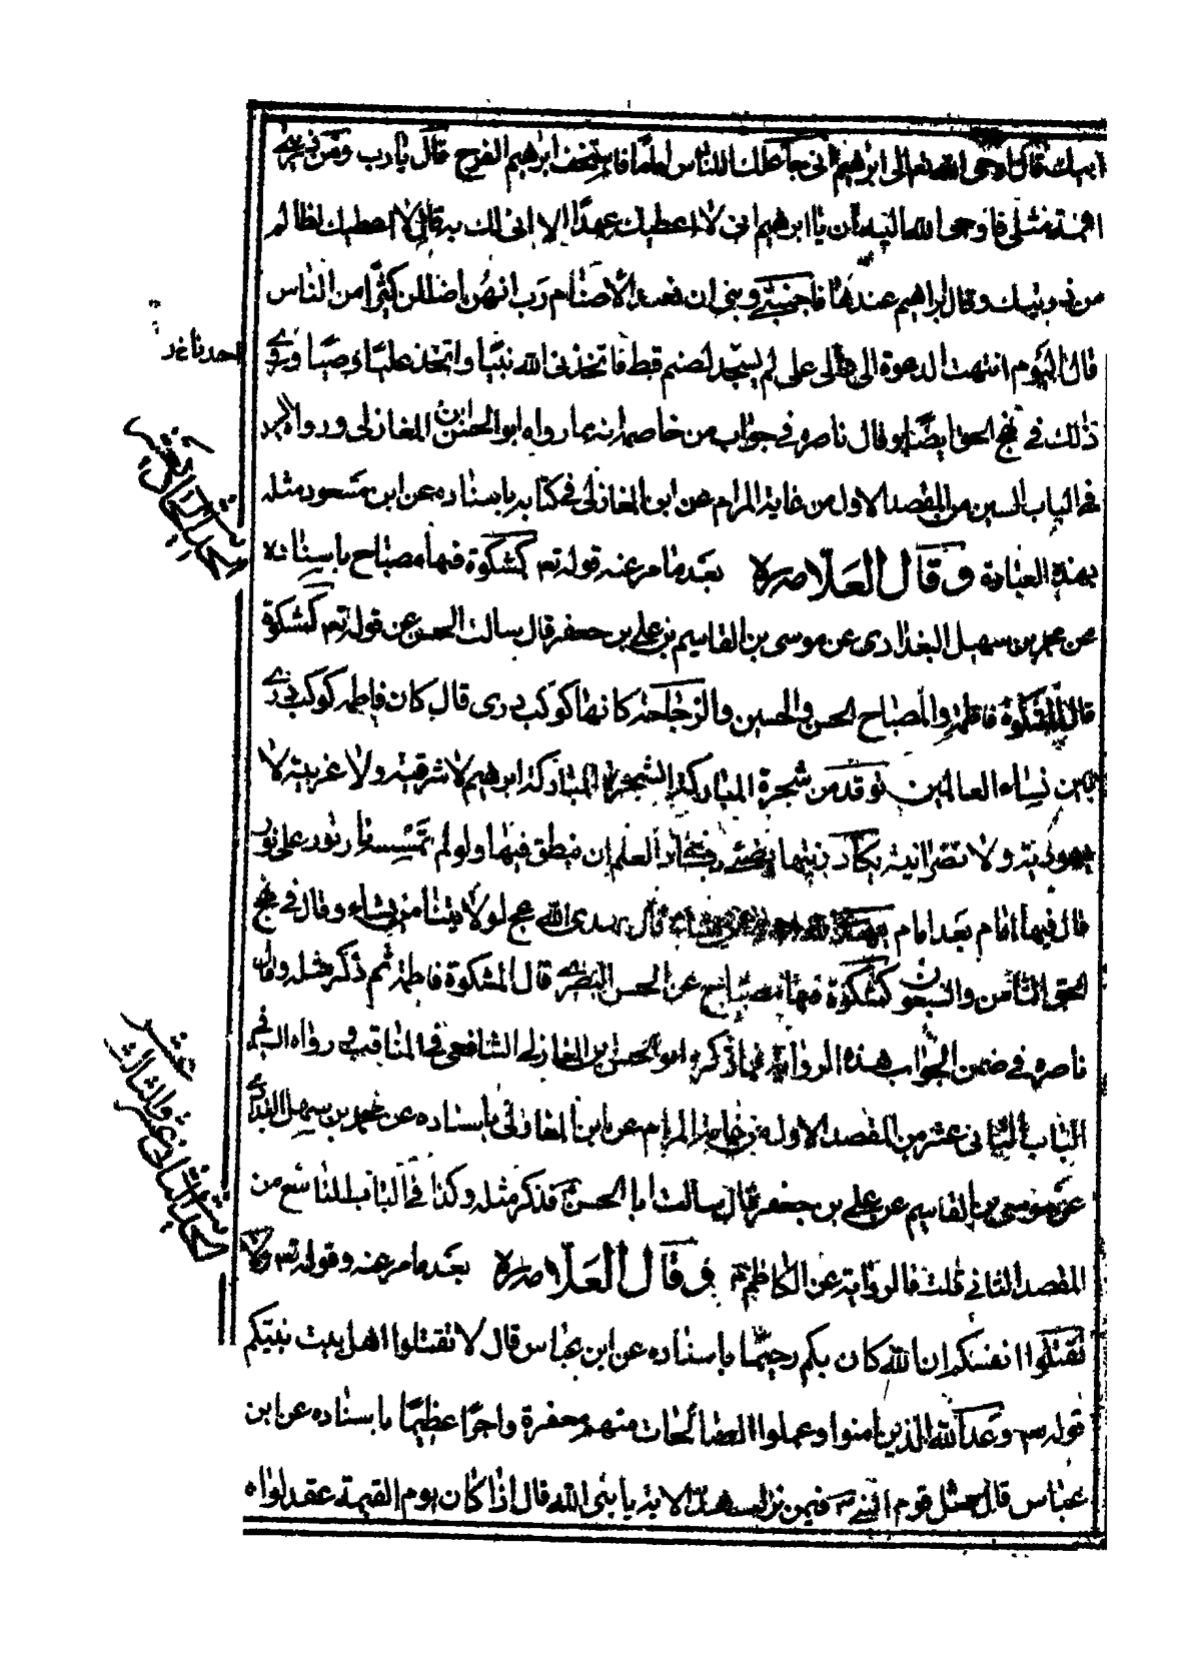 ابيك قال اوحى الله تعالى الى ابرهيم انى جاعلك للناس اماما فاستخف ابرهيم الفرح قال يا رب ومن ذريتى
ائمة مثلى فاوحى الله اليه ان يا ابرهيم انى لا اعطيك عهدا لا افى لك به قال لا اعطيك لظالم
من ذريتك وقال ابراهيم عندها فاجنبنى وبنى ان نعبد الاصنام رب انهن اضللن كثيرا من الناس
قال انتهت الدعوة الى والى على لم يسجد لصنم قط فاتخذنى الله نبيا واتخذ عليا وصيا وقرى
ذلك فى نهج الحق ايضا وقال ناصره فى جواب من خاصم انه بما رواه ابو الحسن بن المغازلى ورواه
فى الباب من المقصد الاول من غاية المرام عن ابن المغازلى فى كتابه باسناده عن ابن مسعود مثله
بهذه العبارة وقال العلامه ره بعد ما مر عنه قوله تع كمشكوة فيها مصباح باسناده
عن محمد بن سهل البغدادى عن موسى بن القاسم بن على بن جعفر قال سالت الحسن عن قوله تع كمشكوة
قال المشكوة فاطمة والمصباح الحسن والحسين والزجاجة كانها كوكب درى قال كان فاطمه كوكب درى
بين نساء العالمين توقد من شجرة المباركة الشجرة المباركة ابرهيم لا شرقية ولا غربية لا
يهودية ولا نصرانية يكاد زيتها يضئ العلم ان ينطق فيها ولو لم تمسسه نار نور على نور
قال فيها امام بعد امام قال يهدى الله عج لولايتنا من يشاء وقال فى نهج
الحق الثامن والسبعون كمشكوة فيها مصباح عن الحسن البصرى قال المشكوة فاطمة ثم ذكر مثله وقال
ناصره فى ضمن الجواب هذه الرواية مما ذكره ابو الحسن بن المغازلى الشافعى فى المناقب ورواه السيد فى
الباب الثانى عشر من المقصد الاول من غاية المرام عن ابن المغازلى باسناده عن محمد بن سهل البغدادى
عن موسى بن القاسم عن على بن جعفر قال سالت ابا الحسن فذكر مثله وكذا فى الباب التاسع من
المقصد الثانى قلت فالرواية عن الكاظم وقال العلامه ره بعد ما مر عنه وقوله تع ولا
تقتلوا انفسكم ان الله كان بكم رحيما باسناده عن ابن عباس قال لا تقتلوا اهل بيت نبيكم
قوله تع وعد الله الذين امنوا وعملوا الصالحات منهم مغفرة واجرا عظيما باسناده عن ابن
عباس قال سئل قوم النبى فيمن نزلت هذه الاية يا نبى الله قال اذا كان يوم القيمة عقد لواء